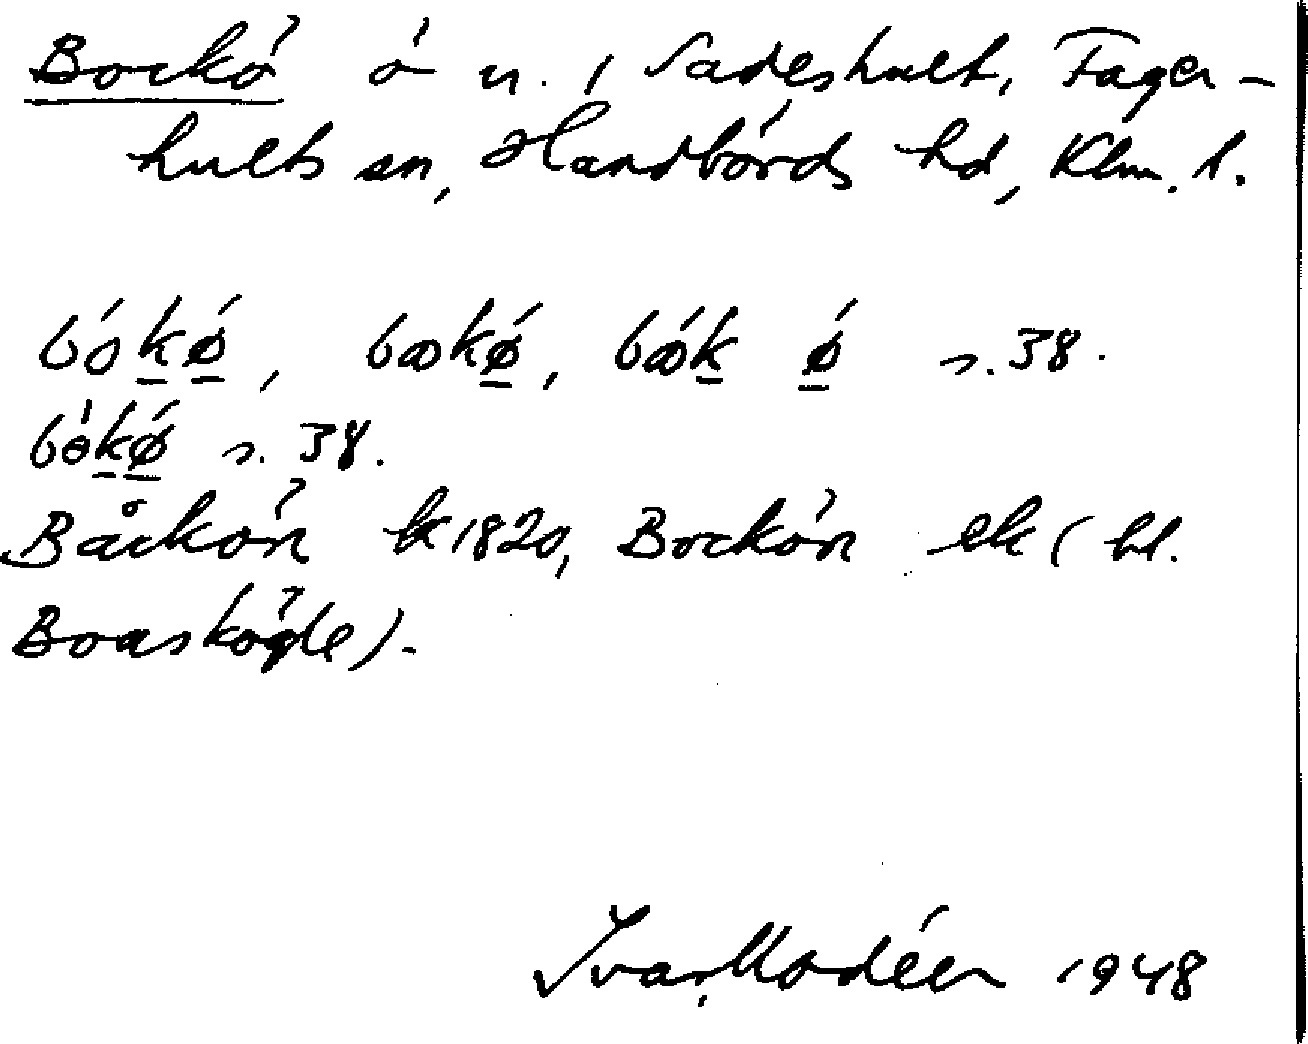 Bockö ö n. i Sadeshult, Fager-
hults sn, Handbörds hd, Klm. l.
bókø, bꝏkǿ, bꝏ́k ǿ s. 38.
bökǿ s. 38.
Båckön lk 1820, Bockön ek (bl.
Boasköyle).
Ivar Modéer 1948